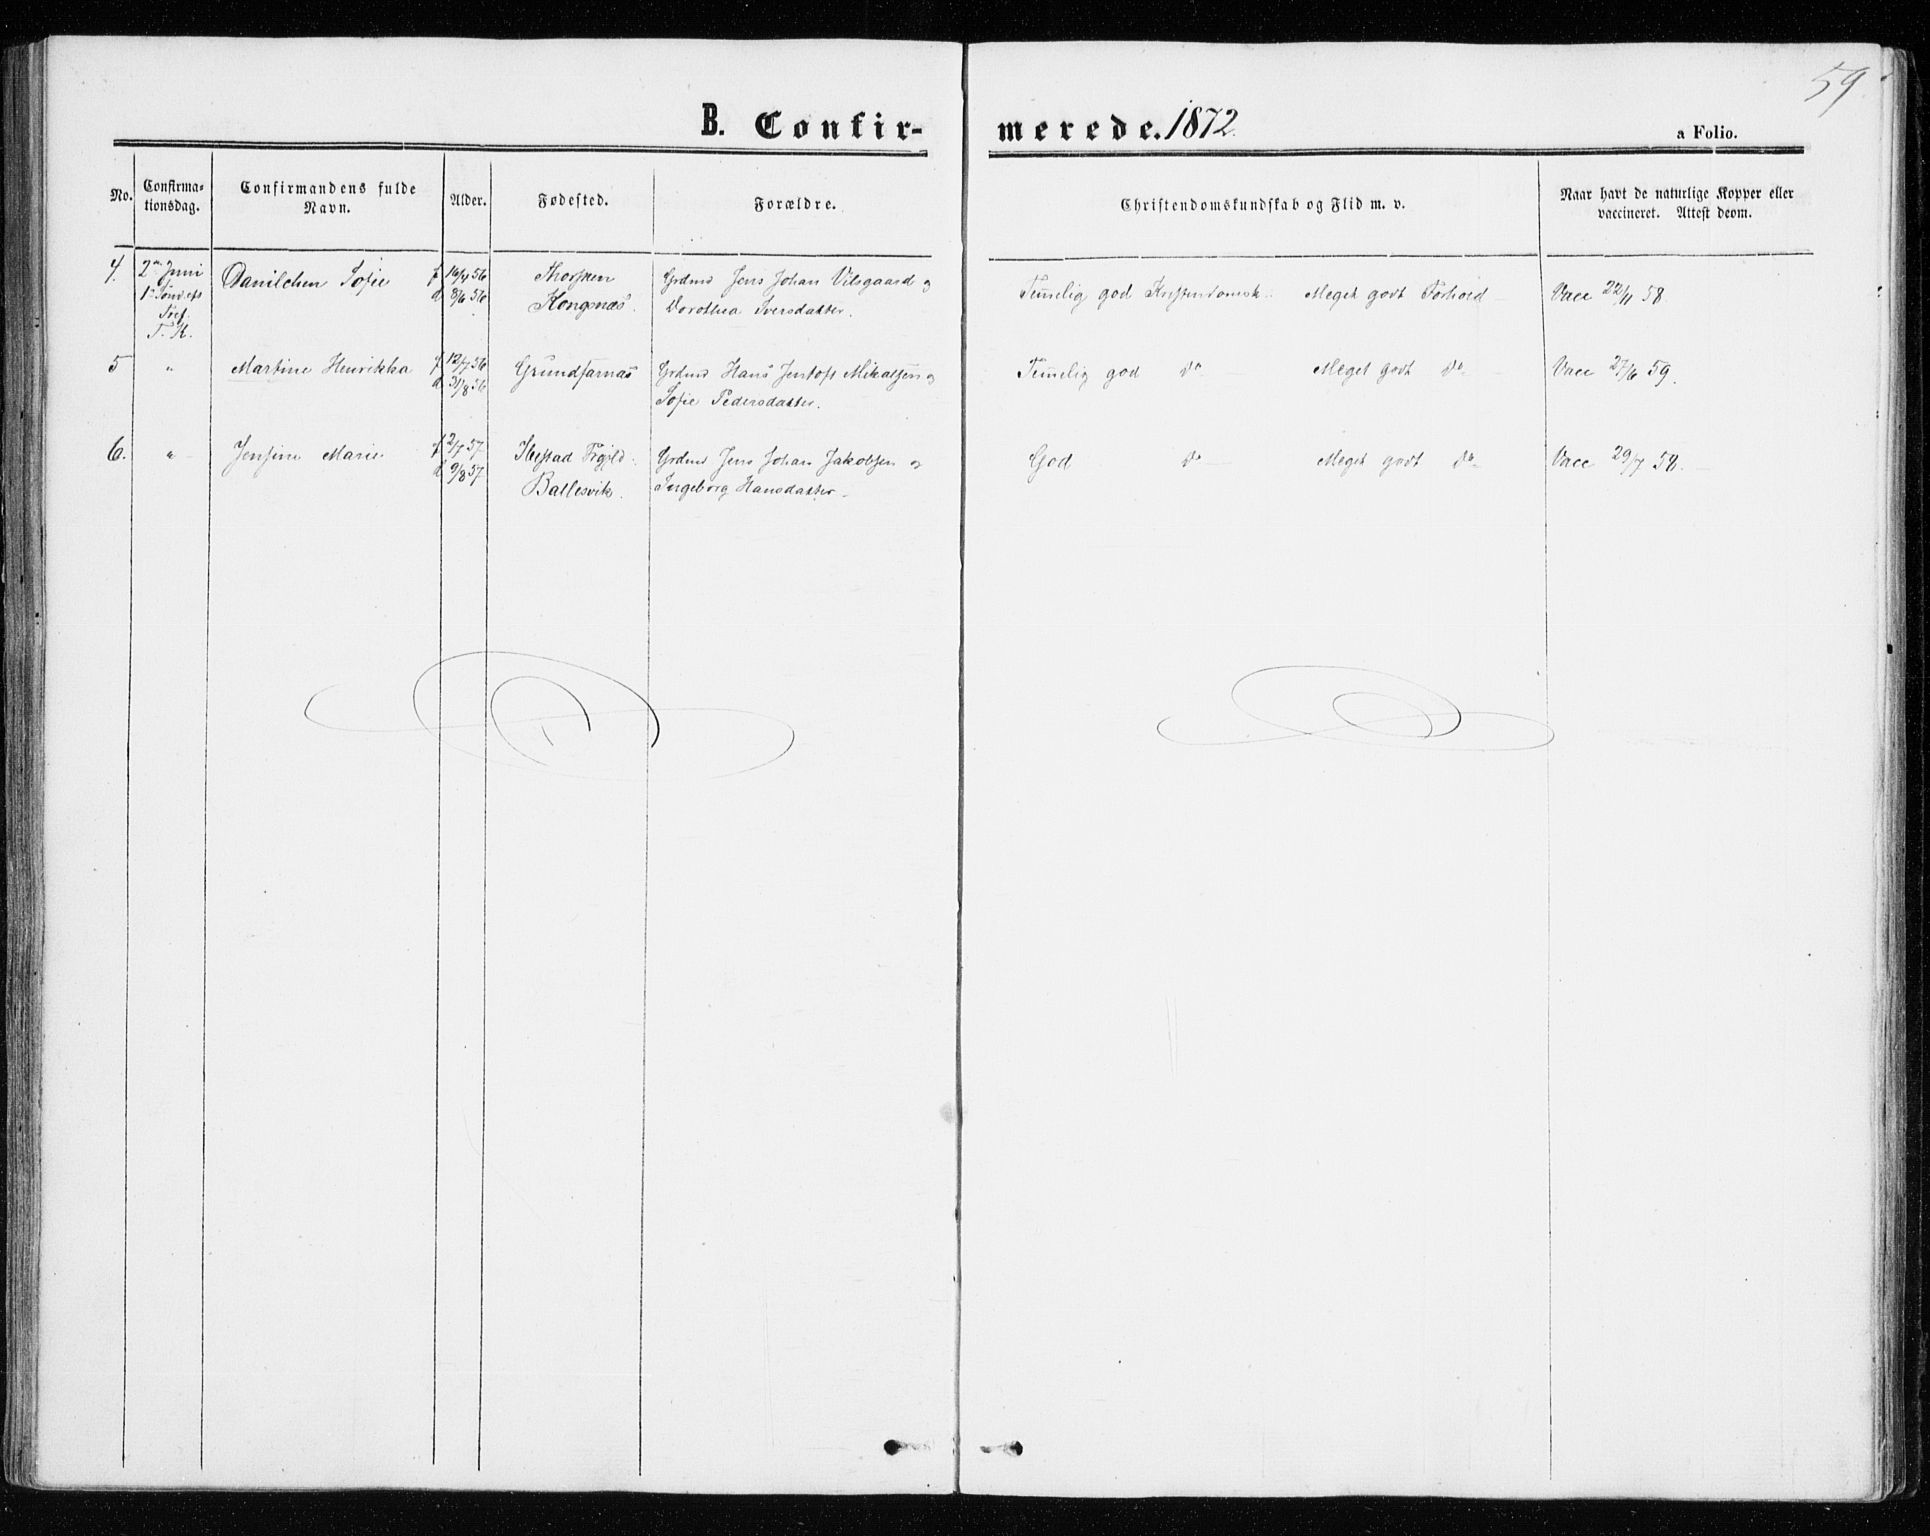 59.
B. Confir-
merede. 1872.
a Folio.
No.
Confirma-
tionsdag.
Confirmandens fulde
Navn.
Alder.
Fødested.
Forældre.
Christendomskundskab og Flid m. v.
Naar havt de naturlige Kopper eller
vaccineret. Attest deom.
4. 2den Juni Danilchen Sofie f 16/4 56 Grdmd Jens Johan Vilsgaard og Temelig god Kristendomsk. Meget godt Forhold Vacc 22/11 58.
d 8/6 56 Kongsnæs. Dorothea Iversdatter.
T. K.
5 " Martine Henrikka f 12/7 56 Grundfarnæs Grdmd Hans Jentoft Mikalsen og Temelig god do Meget godt do Vacc 27/6 59.
d 31/8 56 Sofie Pedersdatter.
6. " Jensine Marie f 2/7 57 Ibestad Grdmd Jens Johan Jakobsen og God do Meget godt do Vacc 29/7 58.
d 9/8 57 Ballesvik. Ingeborg Hansdatter